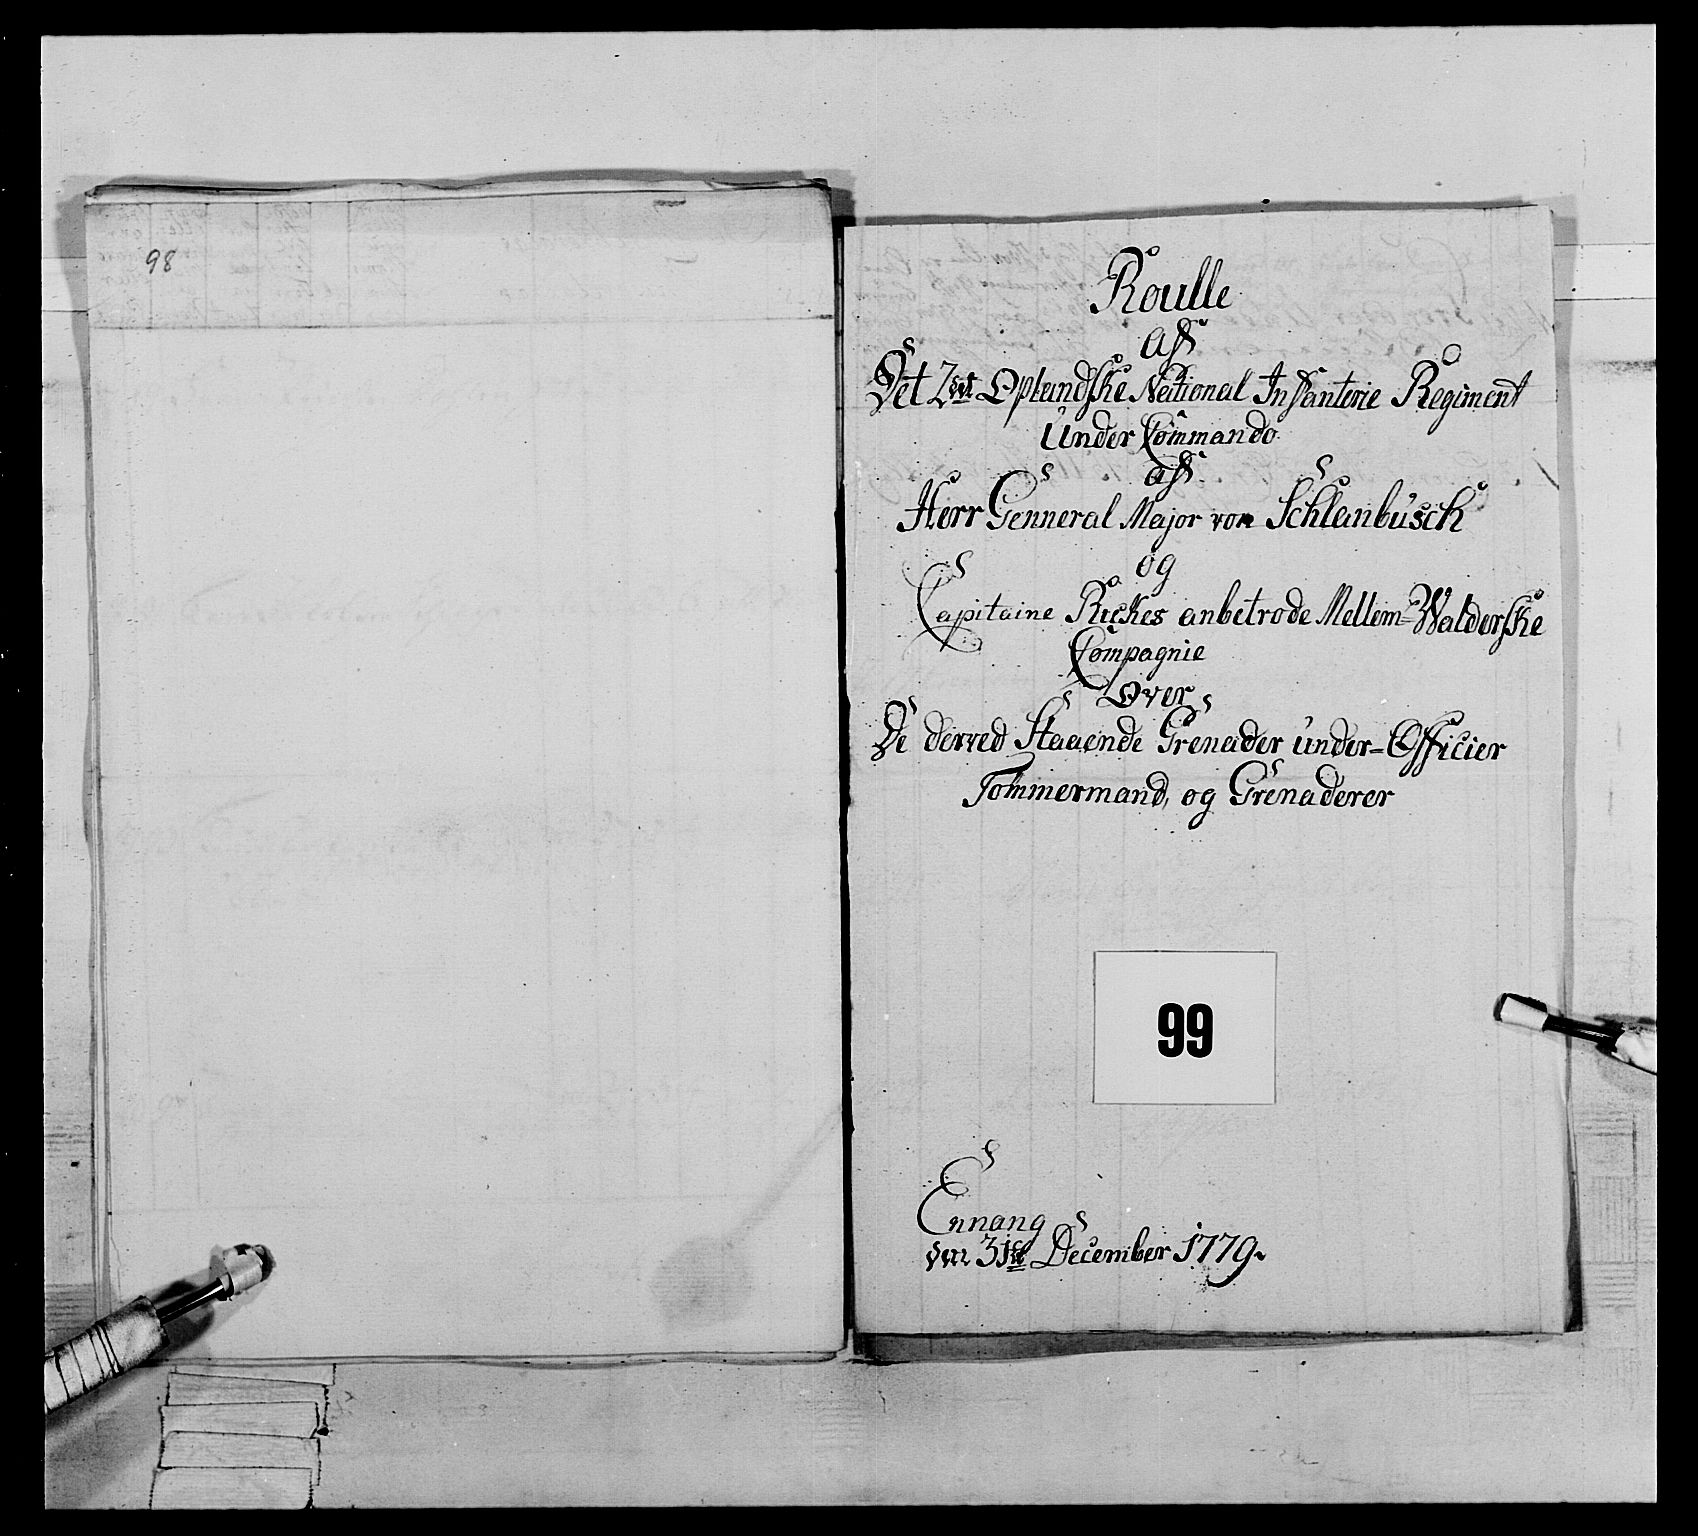 98
Roulle
Aff
Det 2det Oplandske National Infanterie Regiment
Under Commando
aff
Herr Genneral Major von Schlanbusch
og
Capitaine Rickes anbetrode Mellem-Walderske
Compagnie
Over
De derved Staaende Grenader under-Officier
Tømmermand, og Grenaderer
99
Ennang
den 31te December 1779.